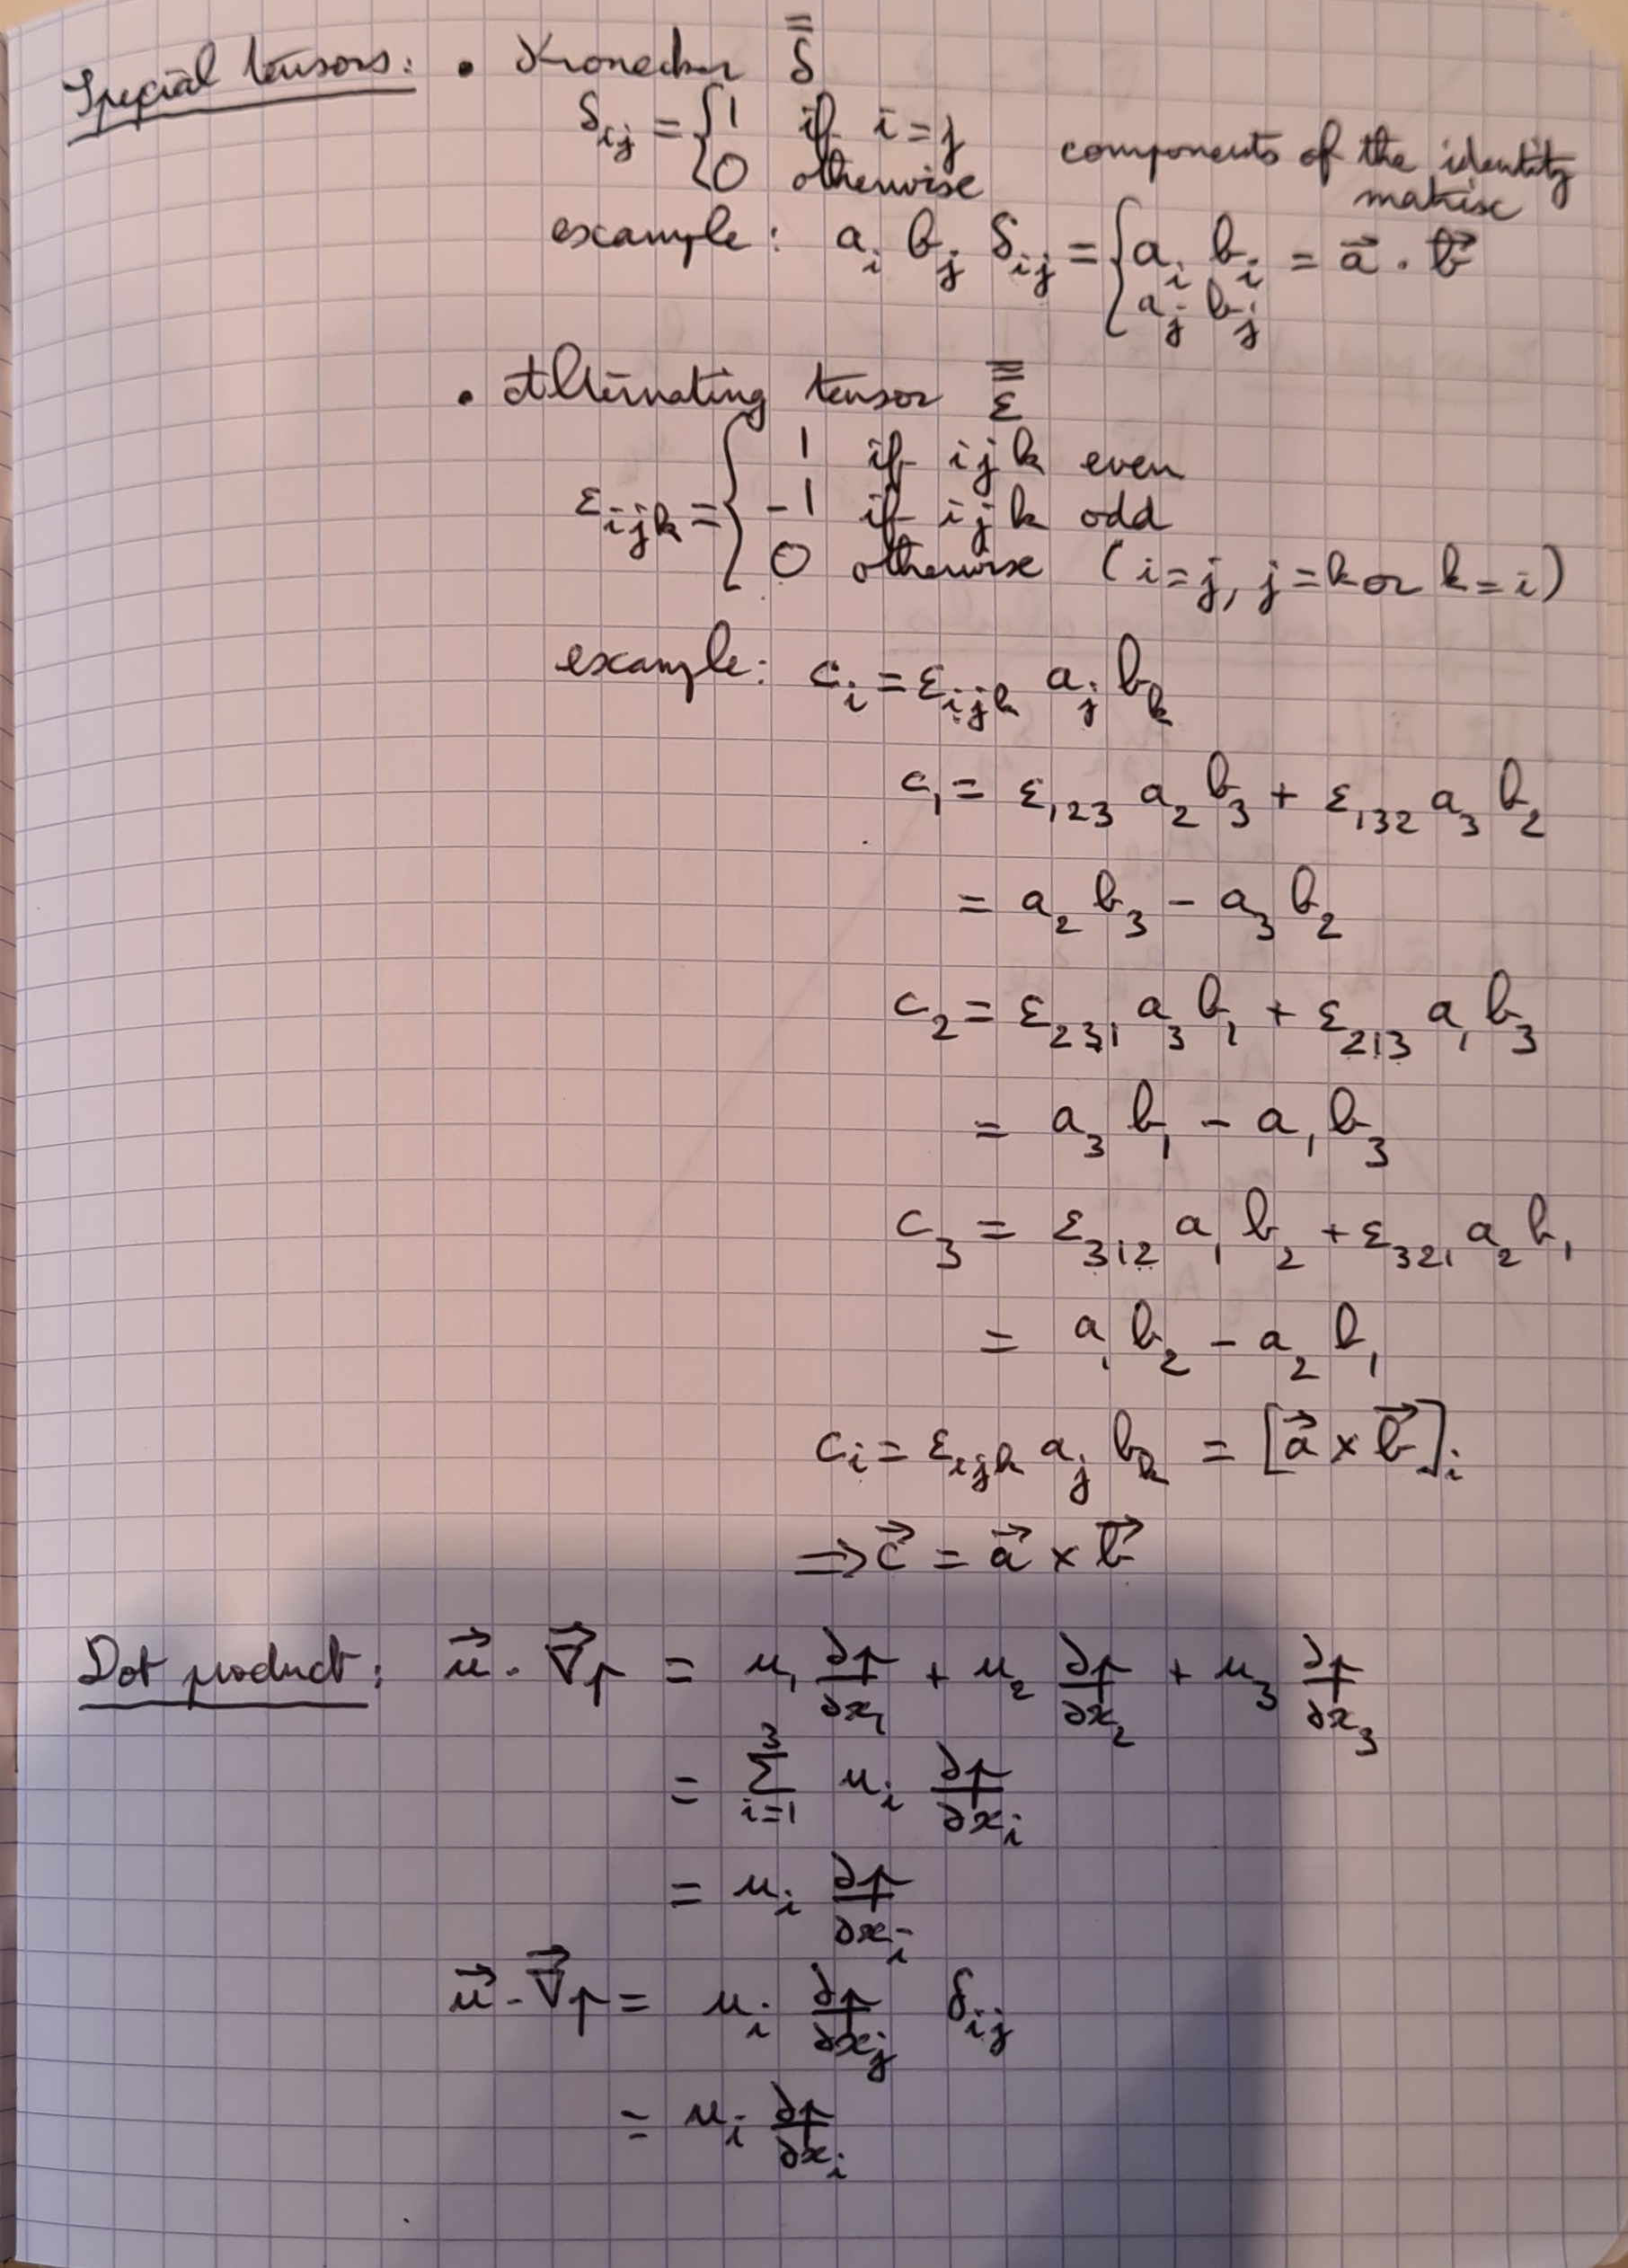 Special tensors: • Kronecker $\overline{\overline{\delta}}$
$\delta_{ij} = \begin{cases} 1 & \text{if } i=j \\ 0 & \text{otherwise} \end{cases}$ components of the identity matrix
example: $a_i b_j \delta_{ij} = \begin{cases} a_i b_i \\ a_j b_j \end{cases} = \vec{a} \cdot \vec{b}$
• Alternating tensor $\overline{\overline{\overline{\varepsilon}}}$
$\varepsilon_{ijk} = \begin{cases} 1 & \text{if } ijk \text{ even} \\ -1 & \text{if } ijk \text{ odd} \\ 0 & \text{otherwise } (i=j, j=k \text{ or } k=i) \end{cases}$
example: $c_i = \varepsilon_{ijk} a_j b_k$
$c_1 = \varepsilon_{123} a_2 b_3 + \varepsilon_{132} a_3 b_2$
$= a_2 b_3 - a_3 b_2$
$c_2 = \varepsilon_{231} a_3 b_1 + \varepsilon_{213} a_1 b_3$
$= a_3 b_1 - a_1 b_3$
$c_3 = \varepsilon_{312} a_1 b_2 + \varepsilon_{321} a_2 b_1$
$= a_1 b_2 - a_2 b_1$
$c_i = \varepsilon_{ijk} a_j b_k = [\vec{a} \times \vec{b}]_i$
$\Rightarrow \vec{c} = \vec{a} \times \vec{b}$
Dot product: $\vec{u} \cdot \vec{\nabla} p = u_1 \frac{\partial p}{\partial x_1} + u_2 \frac{\partial p}{\partial x_2} + u_3 \frac{\partial p}{\partial x_3}$
$= \sum_{i=1}^{3} u_i \frac{\partial p}{\partial x_i}$
$= u_i \frac{\partial p}{\partial x_i}$
$\vec{u} \cdot \vec{\nabla} p = u_i \frac{\partial p}{\partial x_j} \delta_{ij}$
$= u_i \frac{\partial p}{\partial x_i}$